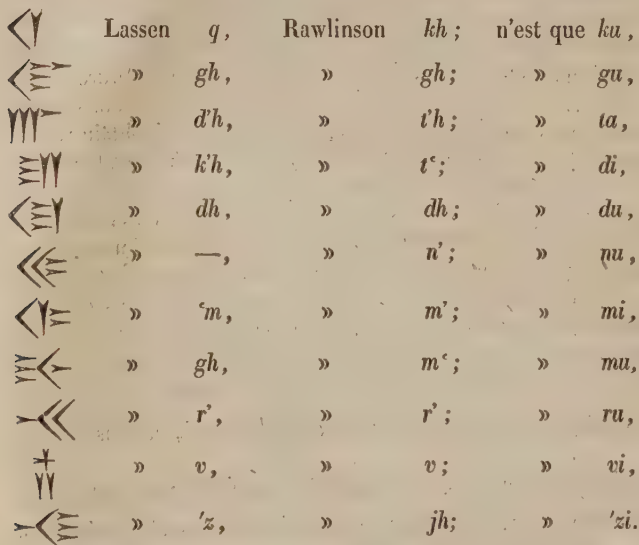 𐎤 Lassen q, Rawlinson kh; n'est que ku,
𐎦 » gh, » gh; » gu,
𐎬 » d'h, » t'h; » ta,
𐎮 » k'h, » tʿ; » di,
𐎯 » dh, » dh; » du,
𐎵 » —, » n'; » nu,
𐎷 » ʿm, » m'; » mi,
𐎸 » gh, » mʿ; » mu,
𐎽 » r', » r'; » ru,
𐎻 » v, » v; » vi,
𐎪 » 'z, » jh; » 'zi.